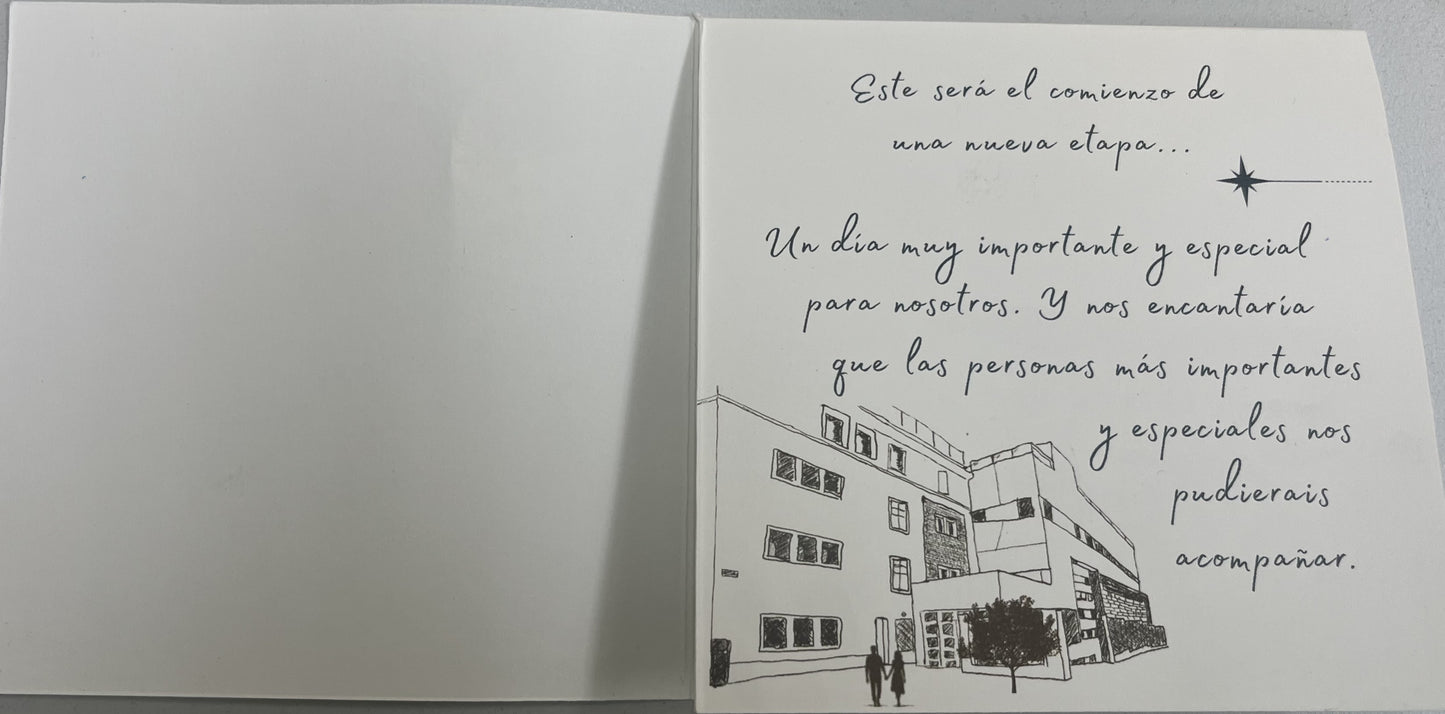 Este será el comienzo de
una nueva etapa...
Un día muy importante y especial
para nosotros. Y nos encantaría
que las personas más importantes
y especiales nos
pudierais
acompañar.